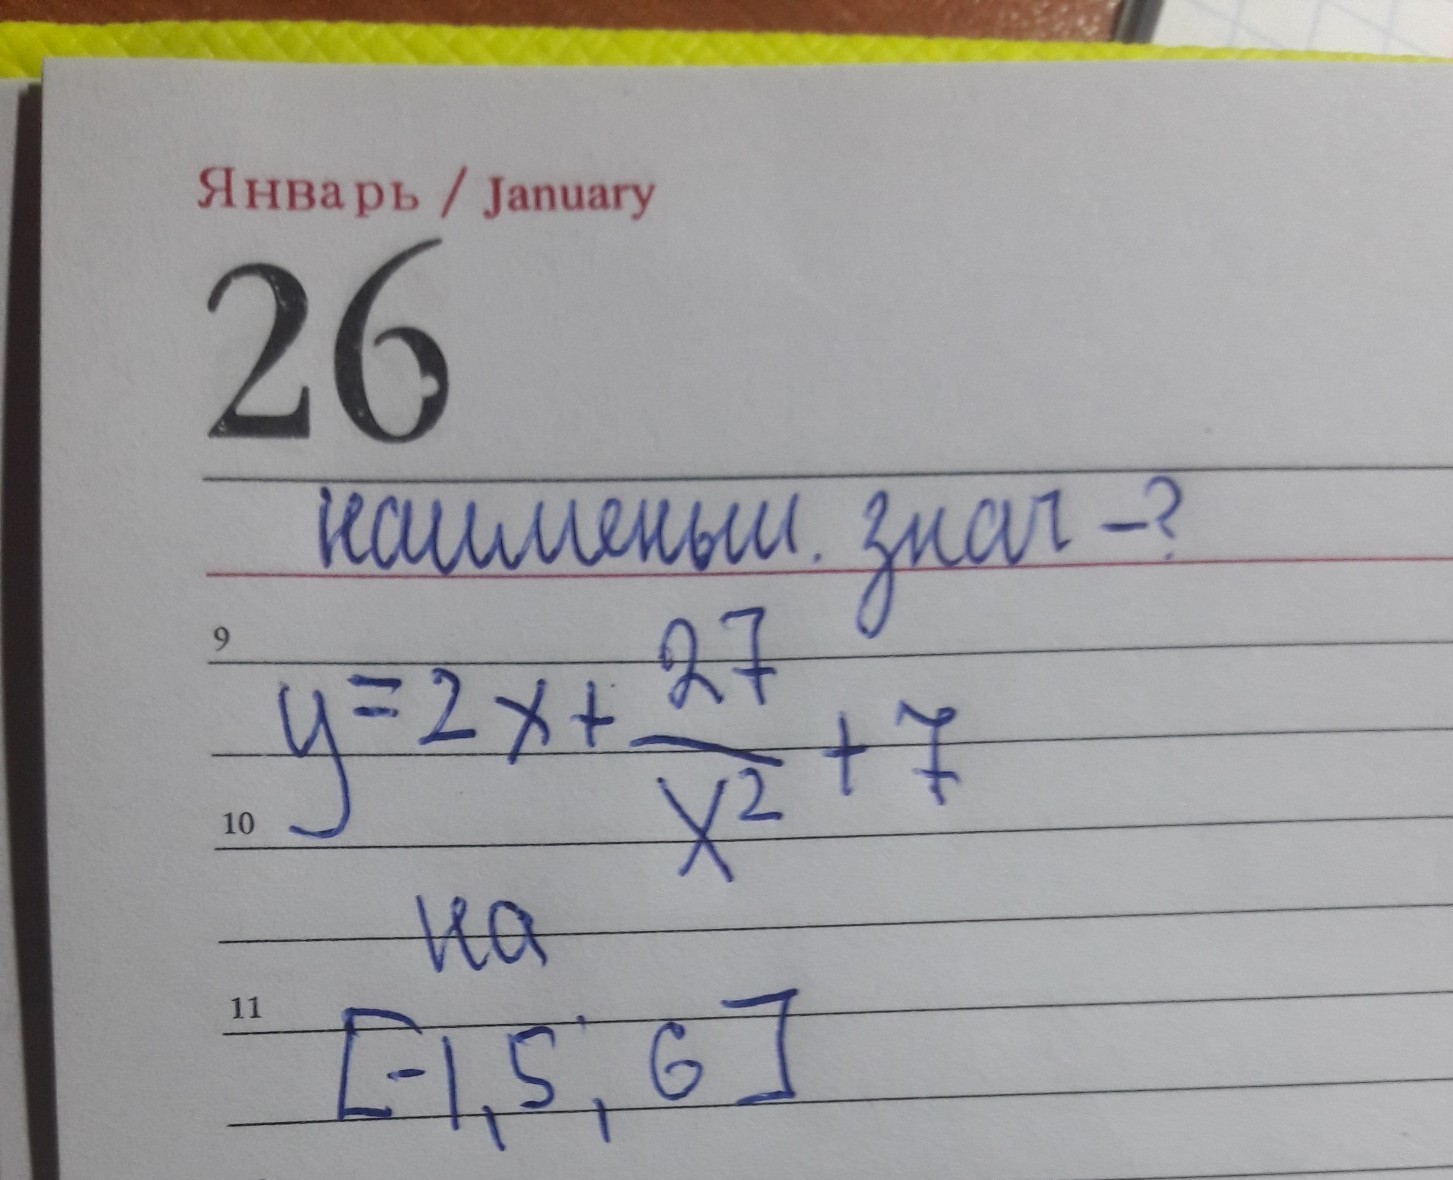 Январь / January
26
наименьш. знач - ?
9
y = 2x + 27/x² + 7
10
на
11
[-1,5; 6]